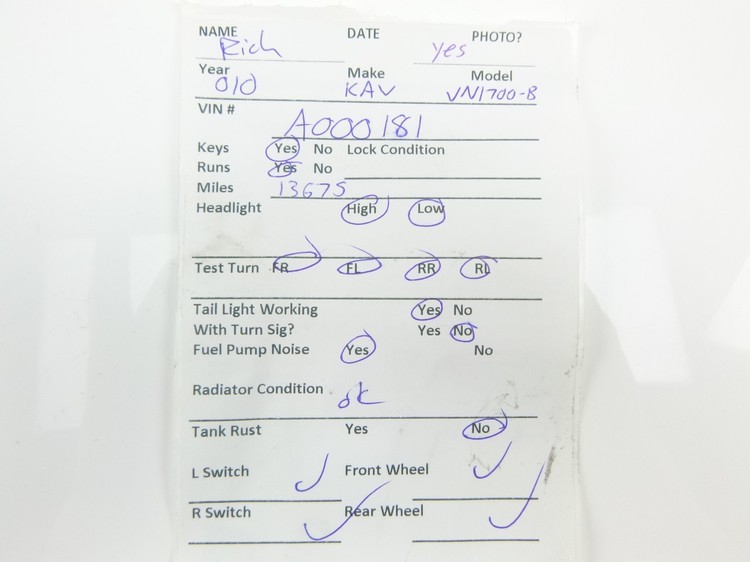 NAME Rich DATE PHOTO? yes
Year 010 Make KAV Model VN1700-B
VIN # A000181
Keys Yes No Lock Condition
Runs Yes No
Miles 13675
Headlight High Low
Test Turn FR FL RR RL
Tail Light Working Yes No
With Turn Sig? Yes No
Fuel Pump Noise Yes No
Radiator Condition ok
Tank Rust Yes No
L Switch ✓ Front Wheel ✓
R Switch ✓ Rear Wheel ✓